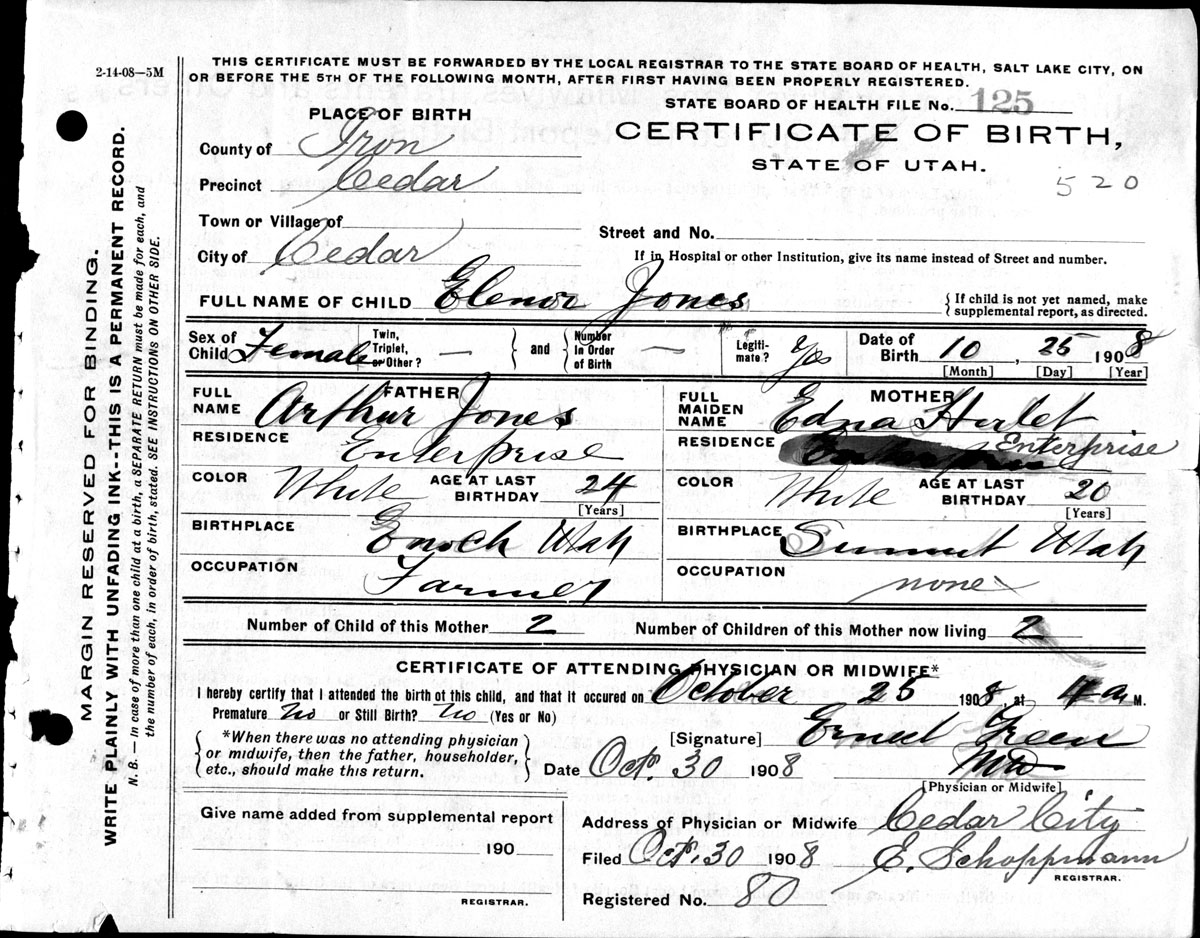 2-14-08—5M
THIS CERTIFICATE MUST BE FORWARDED BY THE LOCAL REGISTRAR TO THE STATE BOARD OF HEALTH, SALT LAKE CITY, ON
OR BEFORE THE 5TH OF THE FOLLOWING MONTH, AFTER FIRST HAVING BEEN PROPERLY REGISTERED.
STATE BOARD OF HEALTH FILE No. 125
PLACE OF BIRTH
CERTIFICATE OF BIRTH,
STATE OF UTAH.
520
County of Iron
Precinct Cedar
Town or Village of
Street and No.
City of Cedar
If in Hospital or other Institution, give its name instead of Street and number.
FULL NAME OF CHILD Elenor Jones
{ If child is not yet named, make
supplemental report, as directed.
Sex of Child Female
Twin, Triplet, or Other? —
} and {
Number in Order of Birth —
Legiti-mate? Yes
Date of Birth 10, 25 1908
[Month] [Day] [Year]
FATHER
FULL NAME Arthur Jones
RESIDENCE Enterprise
COLOR White AGE AT LAST BIRTHDAY 24
[Years]
BIRTHPLACE Enoch Utah
OCCUPATION Farmer
MOTHER
FULL MAIDEN NAME Edna Hulet
RESIDENCE Enterprise
COLOR White AGE AT LAST BIRTHDAY 20
[Years]
BIRTHPLACE Summit Utah
OCCUPATION none
Number of Child of this Mother 2 Number of Children of this Mother now living 2
CERTIFICATE OF ATTENDING PHYSICIAN OR MIDWIFE*
I hereby certify that I attended the birth of this child, and that it occured on October 25 1908, at 4 a M.
Premature No or Still Birth? No (Yes or No)
{ *When there was no attending physician
or midwife, then the father, householder,
etc., should make this return. }
[Signature] Ernest Green
MD
[Physician or Midwife]
Date Oct. 30 1908
Give name added from supplemental report
190
REGISTRAR.
Address of Physician or Midwife Cedar City
Filed Oct. 30 1908 E. Schoppmann
REGISTRAR.
Registered No. 80
MARGIN RESERVED FOR BINDING.
WRITE PLAINLY WITH UNFADING INK--THIS IS A PERMANENT RECORD.
N. B.— In case of more than one child at a birth, a SEPARATE RETURN must be made for each, and
the number of each, in order of birth, stated. SEE INSTRUCTIONS ON OTHER SIDE.